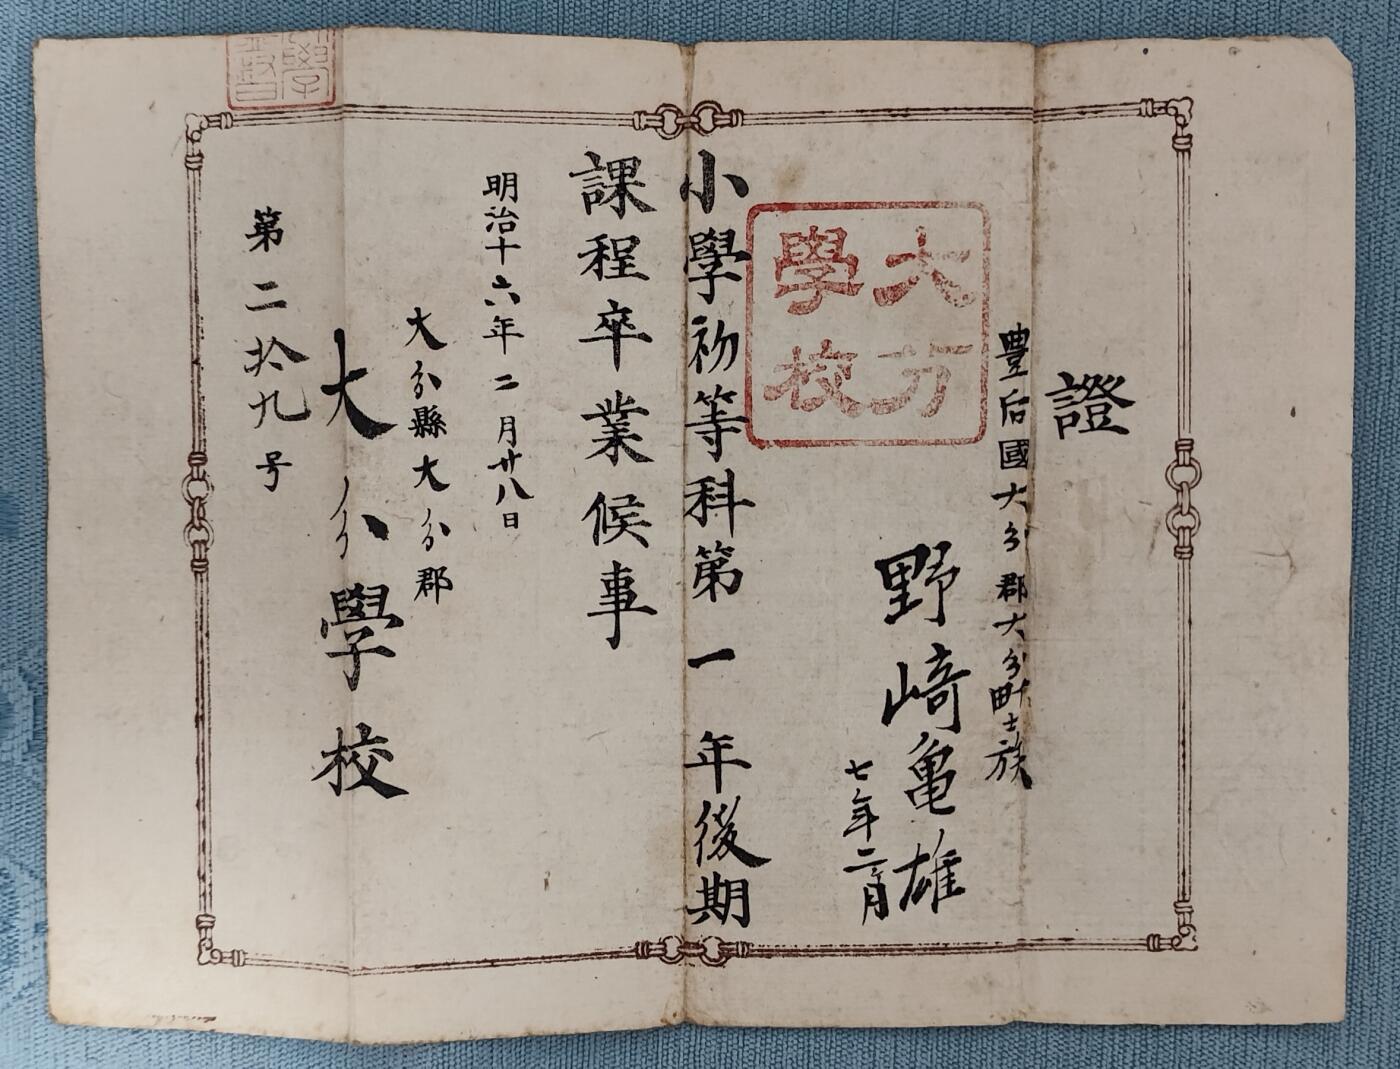 證
豊后國大分郡大分町士族
野﨑亀雄
七年二月
大分
學校
小學初等科第一年後期
課程卒業候事
明治十六年二月廿八日
大分縣大分郡
大分學校
第二拾九号